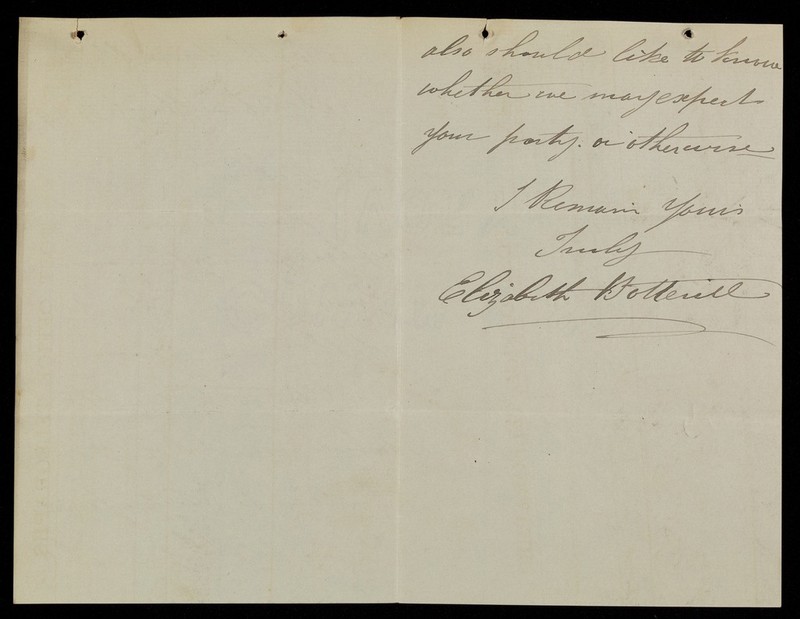 also should like to know
whether we may expect
your party. or otherwise
I Remain Yours
Truly
Elizabeth Botterill